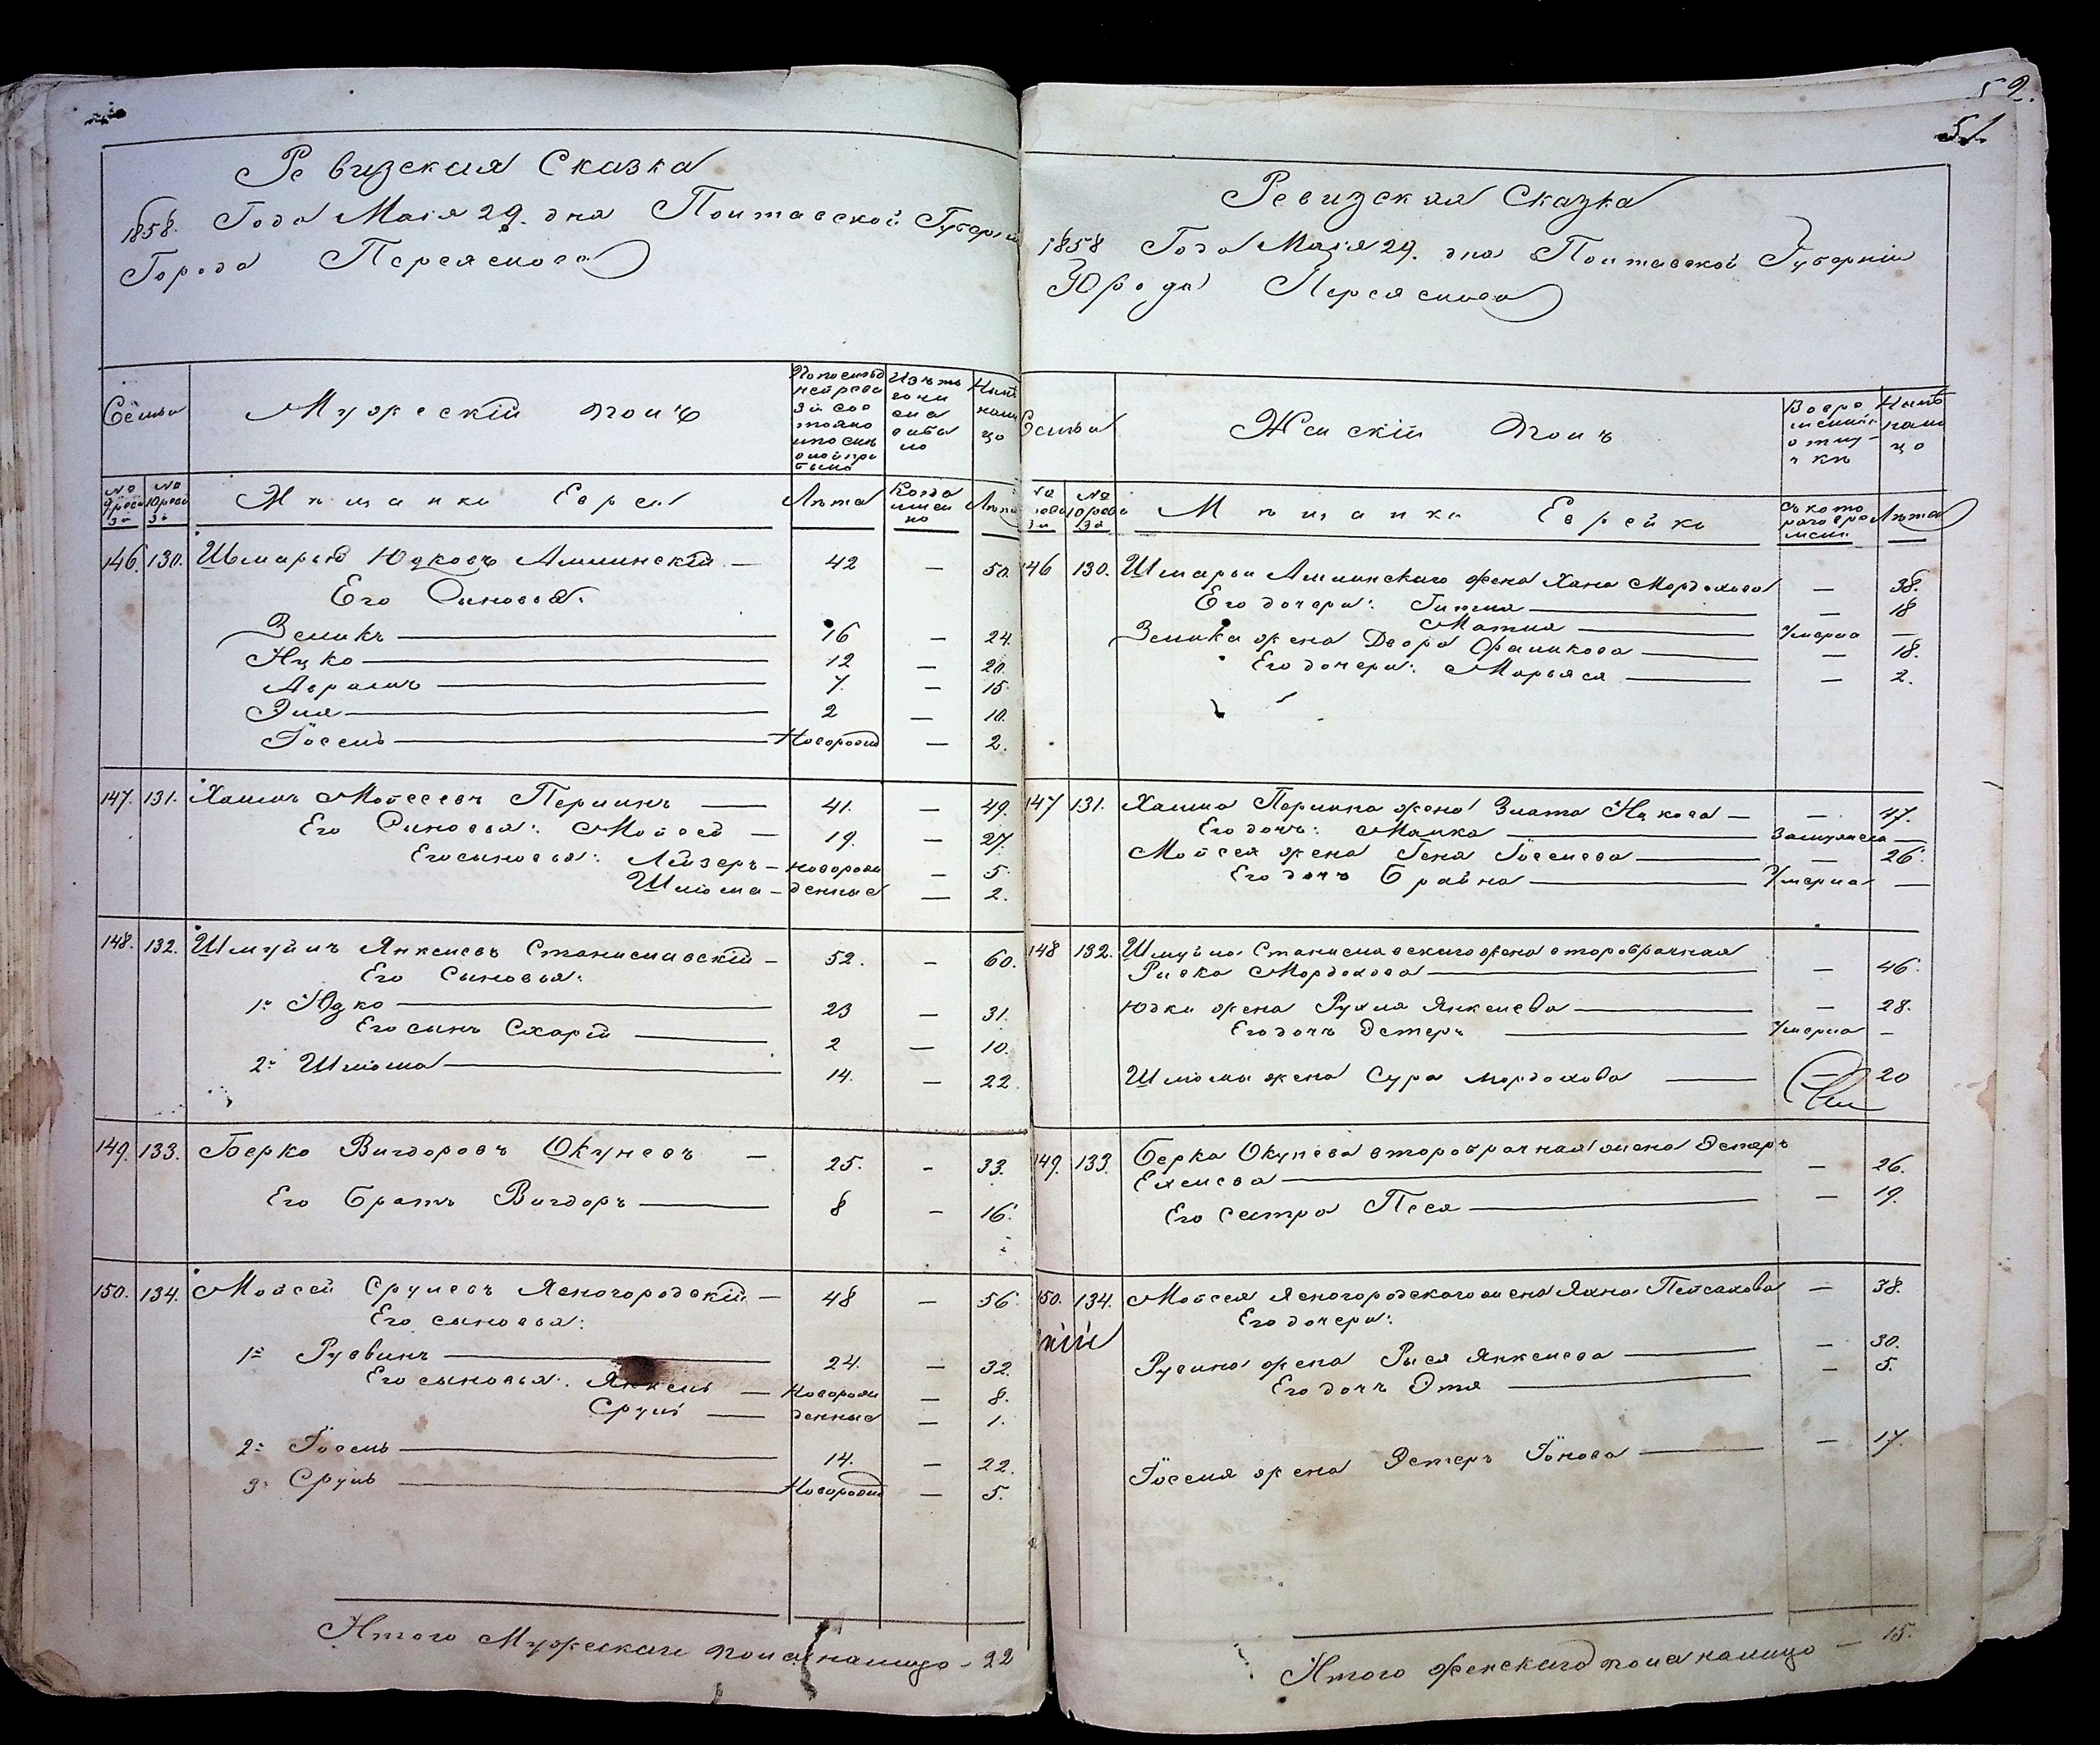 Ревизская Сказка
1858. Года Маія 29. дня Полтавской Губерніи
Города Переяслова
Семьи
Мужескій полъ
По последней ревизіи состояло и после оной прибыло
Изъ того числа выбыло
Ныне на лицо
№ 9 ревизіи
№ 10 ревизіи
Мѣщанки Евреи
Лѣта
Когда именно
Лѣта
146. 130. Шмарья Юдковъ Ашлинскій — 42 — 50.
Его Сыновья:
Зеликъ — 16 — 24.
Ицко — 12 — 20.
Аврамъ — 7. — 15.
Элья — 2 — 10.
Іосель — Новорожд — 2.
147. 131. Хаимъ Мойсеевъ Перлинъ — 41. — 49.
Его Сыновья: Мойсей — 19. — 27.
Его сыновья: Лейзеръ — новорож — 5.
Шлиома — денные — 2.
148. 132. Шмуйлъ Янкелевъ Станиславскій — 52. — 60.
Его Сыновья:
1й Юдко — 23 — 31.
Его сынъ Сахарій — 2 — 10.
2й Шлиома — 14. — 22.
149. 133. Берко Вигдоровъ Окуневъ — 25. — 33.
Его братъ Вигдоръ — 8 — 16.
150. 134. Мойсей Срулевъ Ясногородскій — 48 — 56.
Его сыновья:
1й Рувинъ — 24. — 32.
Его сыновья: Янкель — Новорож — 8.
Сруль — денные — 1.
2й Іосель — 14. — 22.
3й Сруль — Новорожд — 5.
Итого Мужескаго пола налицо — 22
52.
51.
Ревизская Сказка
1858 Года Маія 29. дня Полтавской Губерніи
Города Переяслова
Семьи
Женскій полъ
Во временной отлучкѣ
Нынѣ на лицо
№ 9 ревизіи
№ 10 ревизіи
Мѣщанки Еврейки
Съ котораго времени
Лѣта
146 130. Шмарьи Ашлинскаго жена Хана Мордохова — 38.
Его дочери: Гитля — 18
Матля — Умерла —
Зелика жена Двора Фаликова — 18.
Его дочери: Марьяся — 2.
147 131. Хаима Перлина жена Злата Ицкова — 47.
Его дочь: Малка — Замужемъ —
Мойсея жена Геня Іоселева — 26.
Его дочь Брайна — Умерла —
148 132. Шмуйла Станиславскаго жена второбрачная
Ривка Мордохова — 46
Юдки жена Рухля Янкелева — 28.
Его дочь Эстеръ — Умерла —
Шлиомы жена Сура Мордохова — 20
149. 133. Берка Окунева второбрачная жена Эстеръ
Ехелева — 26.
Его сестра Песя — 19.
150. 134. Мойсея Ясногородскаго жена Яхна Пейсахова — 38.
Его дочери:
Рувина жена Рыся Янкелева — 30.
Его дочь Этя — 5.
Іоселя жена Эстеръ Іонова — 17.
Итого женскаго пола налицо — 15.